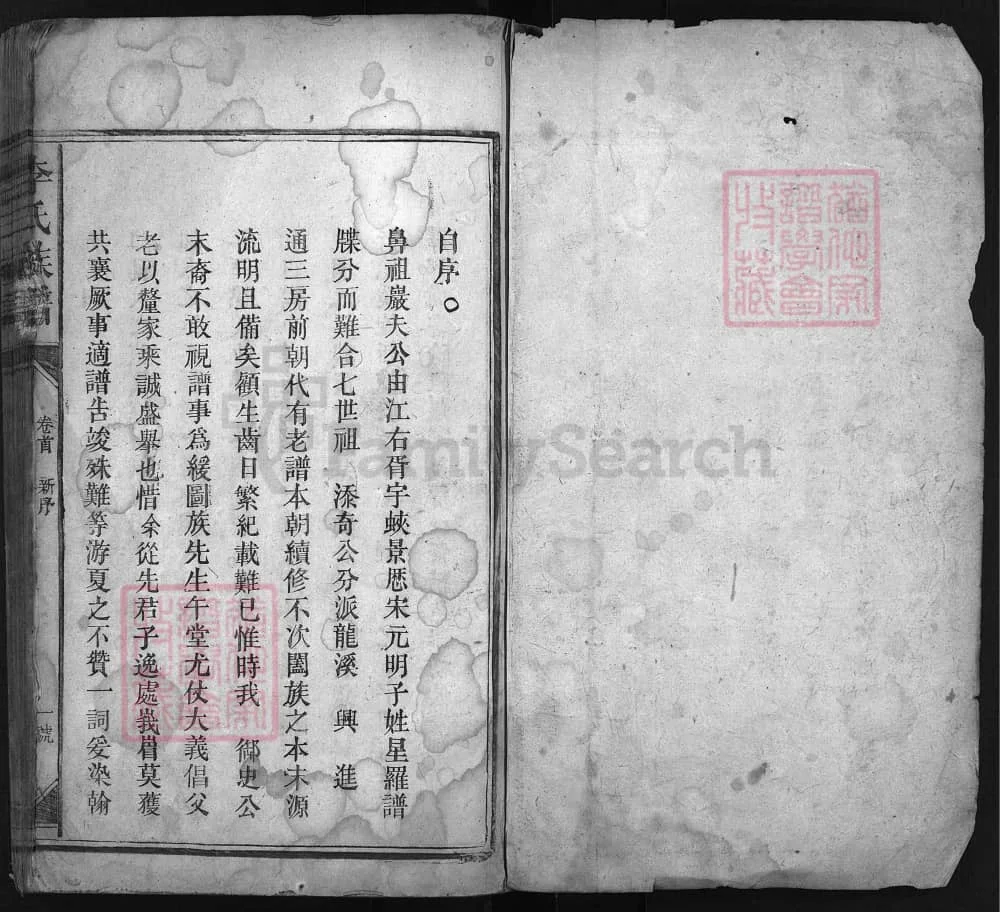 自序○
鼻祖巖夫公由江右胥宇蛺景歷宋元明子姓星羅譜
牒分而難合七世祖 添奇公分派龍溪 興 進
通三房前朝代有老譜本朝續修不次闔族之本末源
流明且備矣顧生齒日繁紀載難已惟時我 御史公
末裔不敢視譜事為緩圖族先生午堂尤仗大義倡父
老以釐家乘誠盛舉也惜余從先君子逸處峩眉莫獲
共襄厥事適譜告竣殊難等游夏之不贊一詞爰染翰
李氏族譜
卷首 新序
一號
譜學會
收藏
FamilySearch